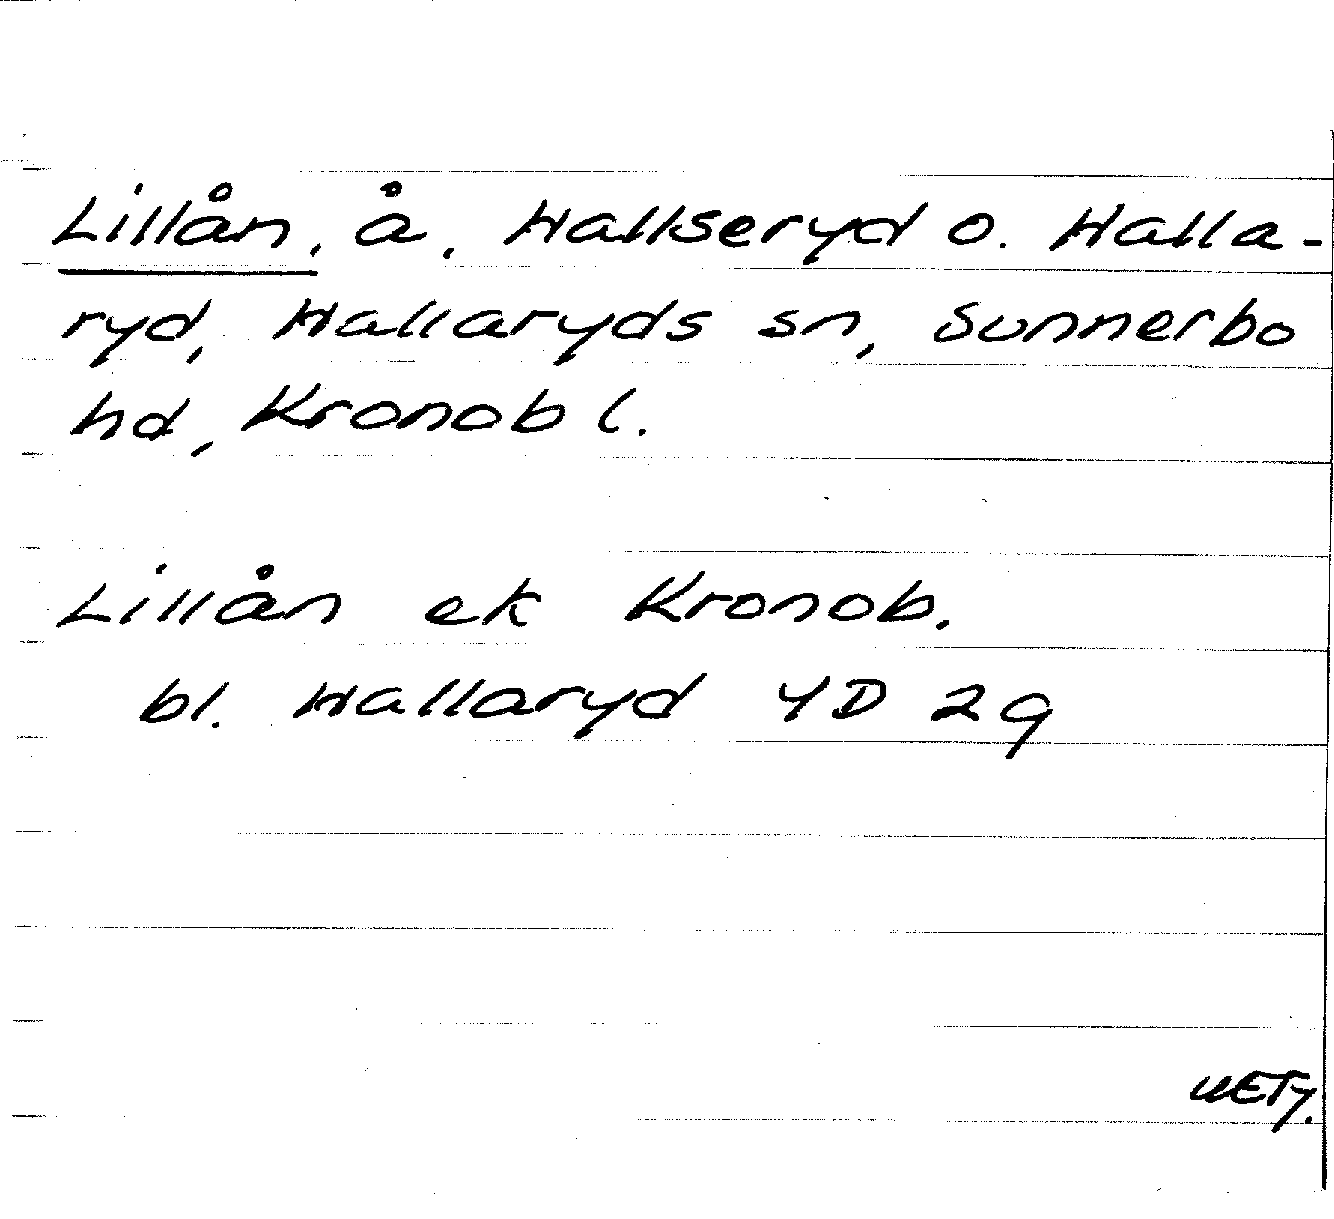 Lillån, å, Hallseryd o. Halla-
ryd, Hallaryds sn, Sunnerbo
hd, Kronob l.
Lillån ek Kronob.
bl. Hallaryd 4D 2g